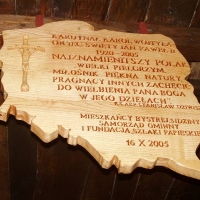 KARDYNAŁ KAROL WOJTYŁA
OJCIEC ŚWIĘTY JAN PAWEŁ II
1920 - 2005
NAJZNAMIENITSZY POLAK
WIELKI PIELGRZYM,
MIŁOŚNIK PIĘKNA NATURY
PRAGNĄCY INNYCH ZACHĘCIĆ
DO WIELBIENIA PANA BOGA
W JEGO DZIEŁACH"
STANISŁAW
MIESZKAŃCY BYSTREJ SIDZINY
SAMORZĄD GMINNY
I FUNDACJA SZLAKI PAPIESKIE
16 X 2005